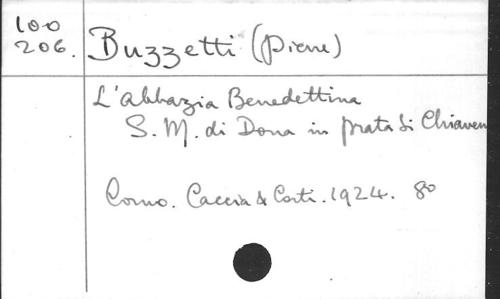 100
206.
Buzzetti (Pierre)
L'abbazia Benedettina
S. M. di Dona in prata di Chiaven
Como. Caccia & Corti. 1924. 80